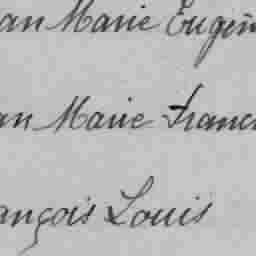 an Marie Eugèn
an Marie Franc
ançois Louis